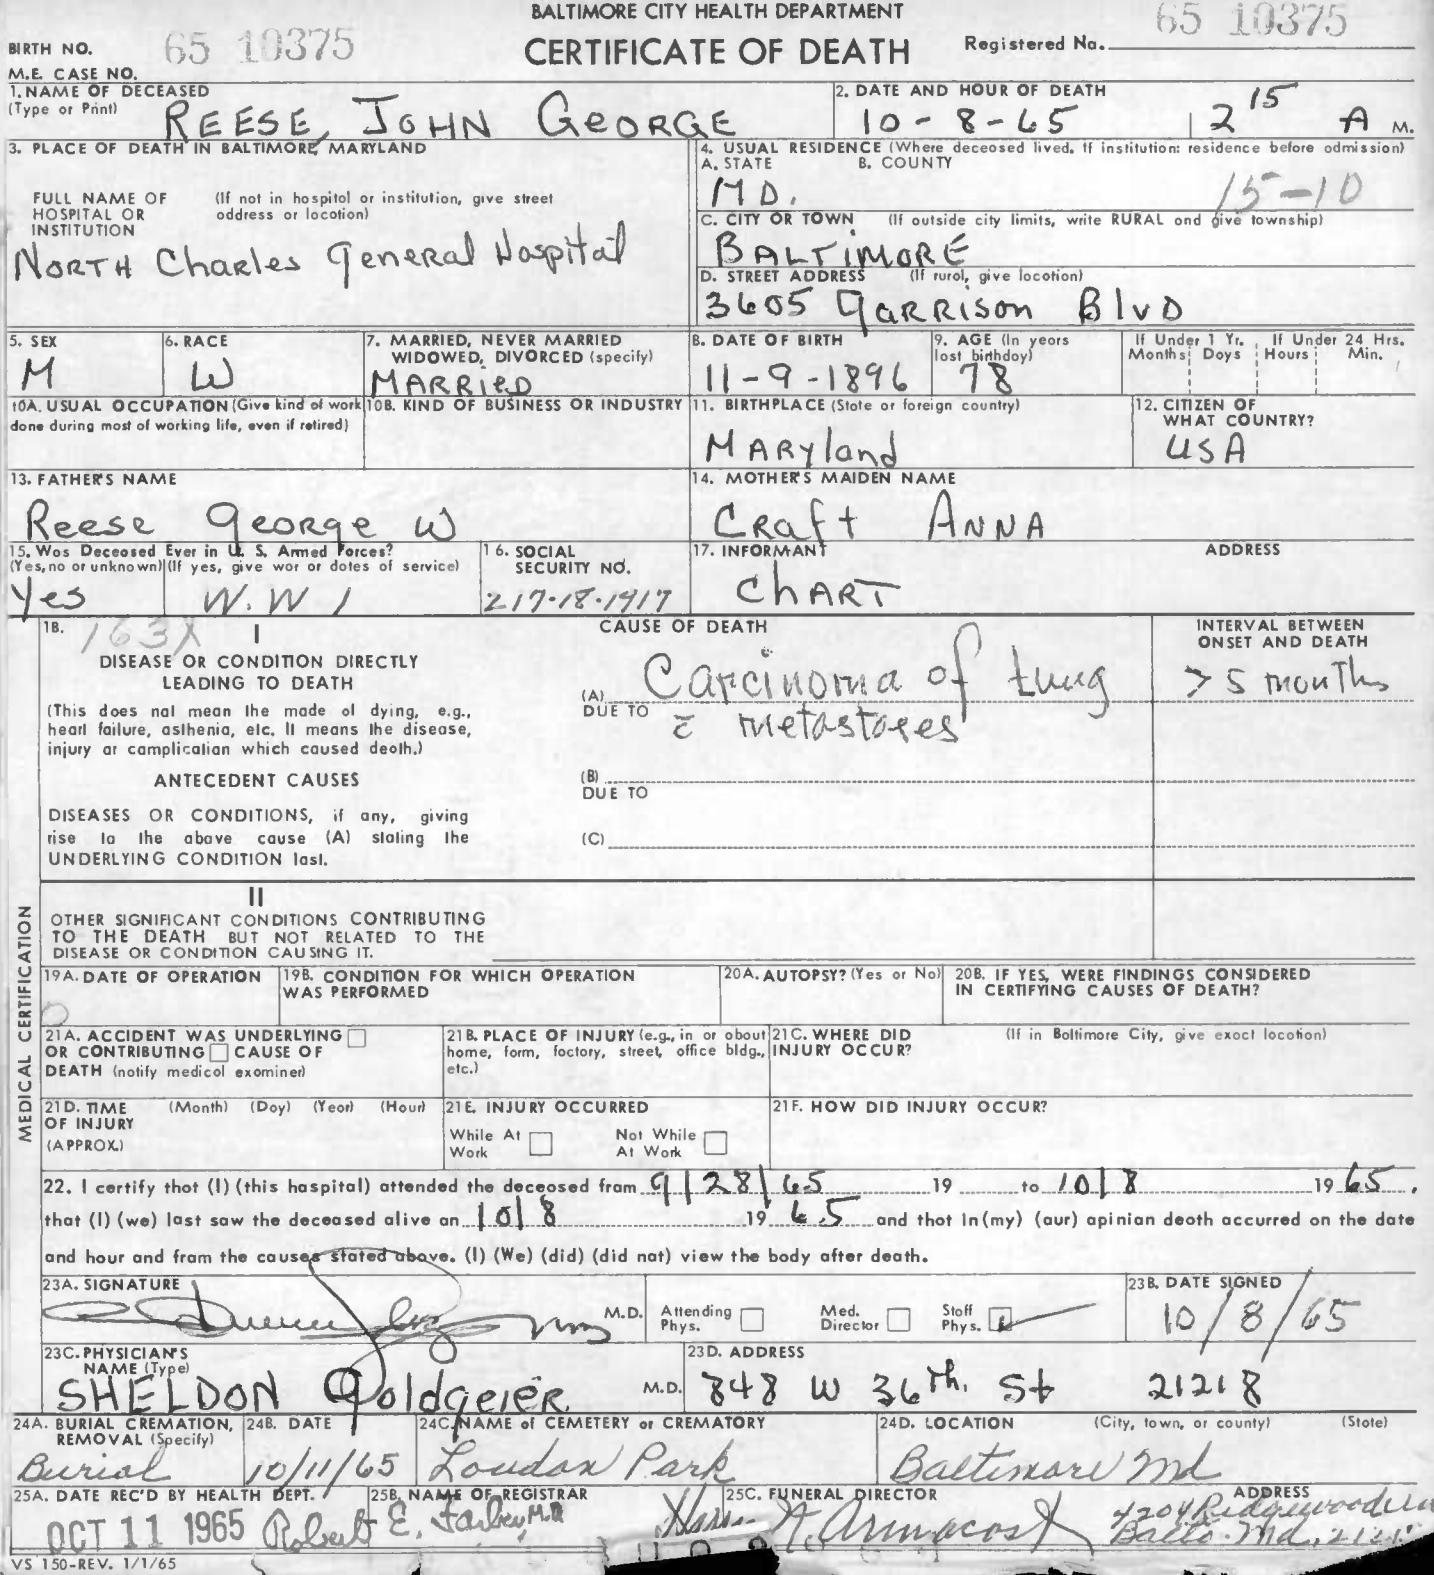 BALTIMORE CITY HEALTH DEPARTMENT
CERTIFICATE OF DEATH
BIRTH NO. 65 10375
Registered No. 65 10375
M.E. CASE NO.
1. NAME OF DECEASED
(Type or Print) REESE, JOHN GEORGE
2. DATE AND HOUR OF DEATH
10-8-65 2 15 A M.
3. PLACE OF DEATH IN BALTIMORE, MARYLAND
FULL NAME OF HOSPITAL OR INSTITUTION
(If not in hospital or institution, give street address or location)
NORTH Charles General Hospital
4. USUAL RESIDENCE (Where deceased lived. If institution: residence before admission)
A. STATE B. COUNTY
MD. 15-10
C. CITY OR TOWN (If outside city limits, write RURAL and give township)
BALTIMORE
D. STREET ADDRESS (If rural, give location)
3605 GARRISON BlvD
5. SEX
M
6. RACE
W
7. MARRIED, NEVER MARRIED
WIDOWED, DIVORCED (specify)
MARRIED
8. DATE OF BIRTH
11-9-1896
9. AGE (In years last birthday)
78
If Under 1 Yr. Months Days
If Under 24 Hrs. Hours Min.
10A. USUAL OCCUPATION (Give kind of work
done during most of working life, even if retired)
10B. KIND OF BUSINESS OR INDUSTRY
11. BIRTHPLACE (State or foreign country)
MARYland
12. CITIZEN OF
WHAT COUNTRY?
USA
13. FATHER'S NAME
Reese George W
14. MOTHER'S MAIDEN NAME
CRaft ANNA
15. Was Deceased Ever in U. S. Armed Forces?
(Yes, no or unknown) (If yes, give war or dates of service)
Yes W.W 1
16. SOCIAL
SECURITY NO.
217-18-1917
17. INFORMANT ADDRESS
ChART
18. 163X I
DISEASE OR CONDITION DIRECTLY
LEADING TO DEATH
(This does not mean the mode of dying, e.g.,
heart failure, asthenia, etc. It means the disease,
injury or complication which caused death.)
ANTECEDENT CAUSES
DISEASES OR CONDITIONS, if any, giving
rise to the above cause (A) stating the
UNDERLYING CONDITION last.
CAUSE OF DEATH
(A) Carcinoma of Lung
DUE TO c̄ metastases
(B)
DUE TO
(C)
INTERVAL BETWEEN
ONSET AND DEATH
> 5 months
MEDICAL CERTIFICATION
II
OTHER SIGNIFICANT CONDITIONS CONTRIBUTING
TO THE DEATH BUT NOT RELATED TO THE
DISEASE OR CONDITION CAUSING IT.
19A. DATE OF OPERATION
0
19B. CONDITION FOR WHICH OPERATION
WAS PERFORMED
20A. AUTOPSY? (Yes or No)
20B. IF YES, WERE FINDINGS CONSIDERED
IN CERTIFYING CAUSES OF DEATH?
21A. ACCIDENT WAS UNDERLYING
OR CONTRIBUTING CAUSE OF
DEATH (notify medical examiner)
21B. PLACE OF INJURY (e.g., in or about
home, farm, factory, street, office bldg.,
etc.)
21C. WHERE DID
INJURY OCCUR?
(If in Baltimore City, give exact location)
21D. TIME (Month) (Day) (Year) (Hour)
OF INJURY
(APPROX.)
21E. INJURY OCCURRED
While At Work Not While At Work
21F. HOW DID INJURY OCCUR?
22. I certify that (I) (this hospital) attended the deceased from 9/28/65 19 to 10/8 1965,
that (I) (we) last saw the deceased alive on 10/8 1965 and that in (my) (our) opinion death occurred on the date
and hour and from the causes stated above. (I) (We) (did) (did not) view the body after death.
23A. SIGNATURE
M.D. Attending Phys. Med. Director Staff Phys.
23B. DATE SIGNED
10/8/65
23C. PHYSICIAN'S
NAME (Type)
SHELDON Goldgeier M.D.
23D. ADDRESS
848 W 36th. St 21218
24A. BURIAL CREMATION,
REMOVAL (Specify)
Burial
24B. DATE
10/11/65
24C. NAME of CEMETERY or CREMATORY
Loudon Park
24D. LOCATION (City, town, or county) (State)
Baltimore Md
25A. DATE REC'D BY HEALTH DEPT.
OCT 11 1965
25B. NAME OF REGISTRAR
Robert E. Farber, M.D.
25C. FUNERAL DIRECTOR
Armacost
ADDRESS
4204 Ridgewood
Balto. Md.
VS 150-REV. 1/1/65